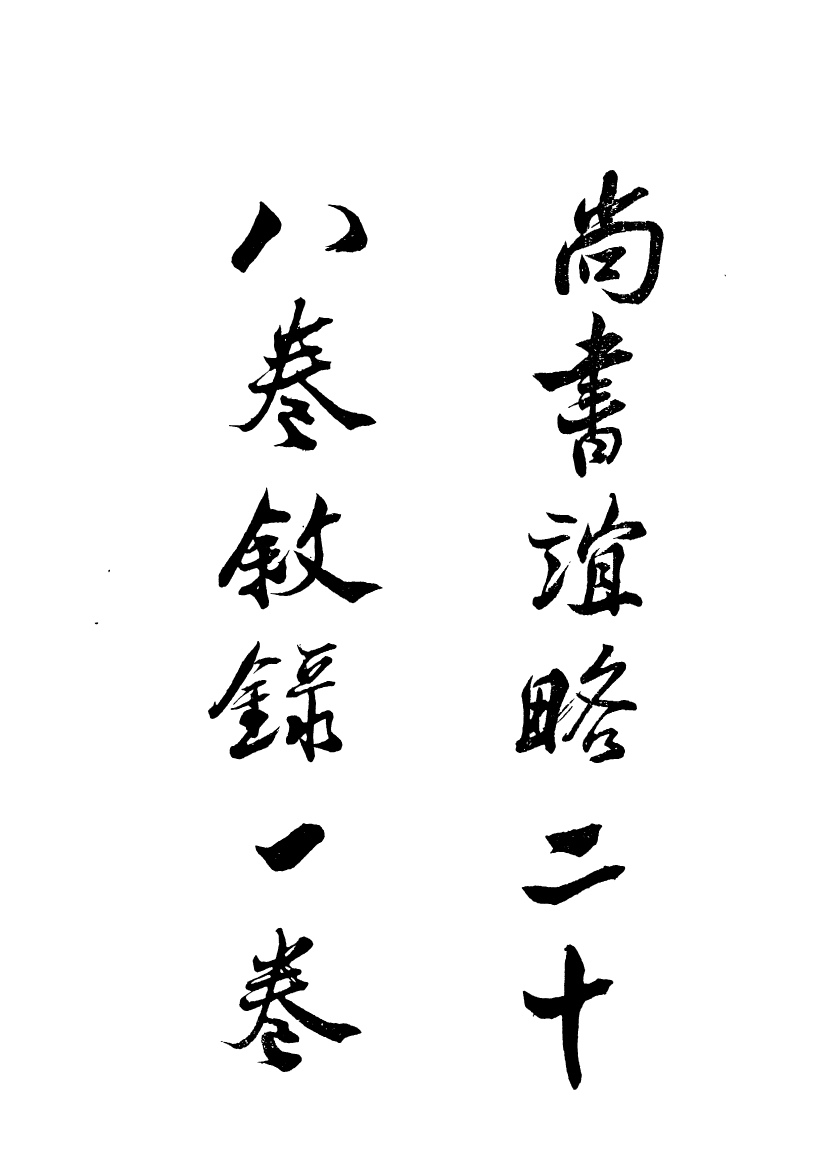 尚書誼略二十
八卷敘錄一卷